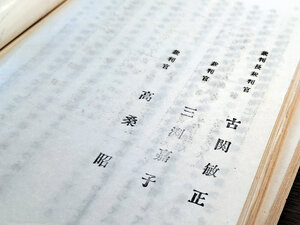 裁判長裁判官 古関敏正
裁判官 三淵嘉子
裁判官 高桑昭